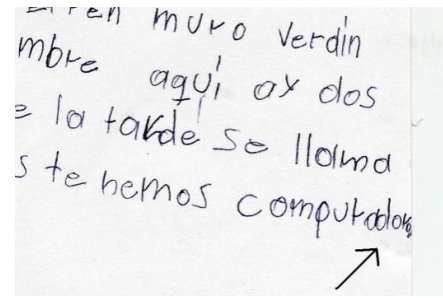 muro Verdin
mbre aqui ay dos
e la tarde se llama
s tenemos computador